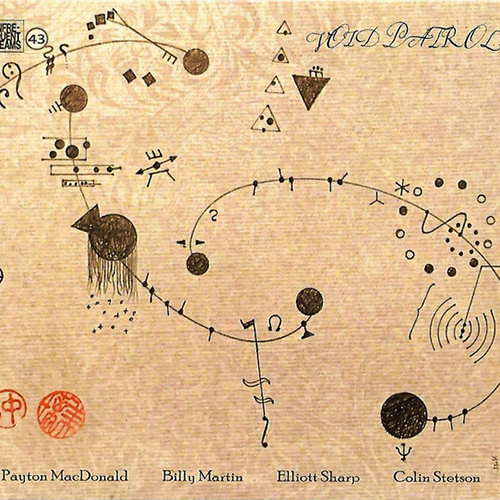 43
VOID PATROL
Payton MacDonald Billy Martin Elliott Sharp Colin Stetson